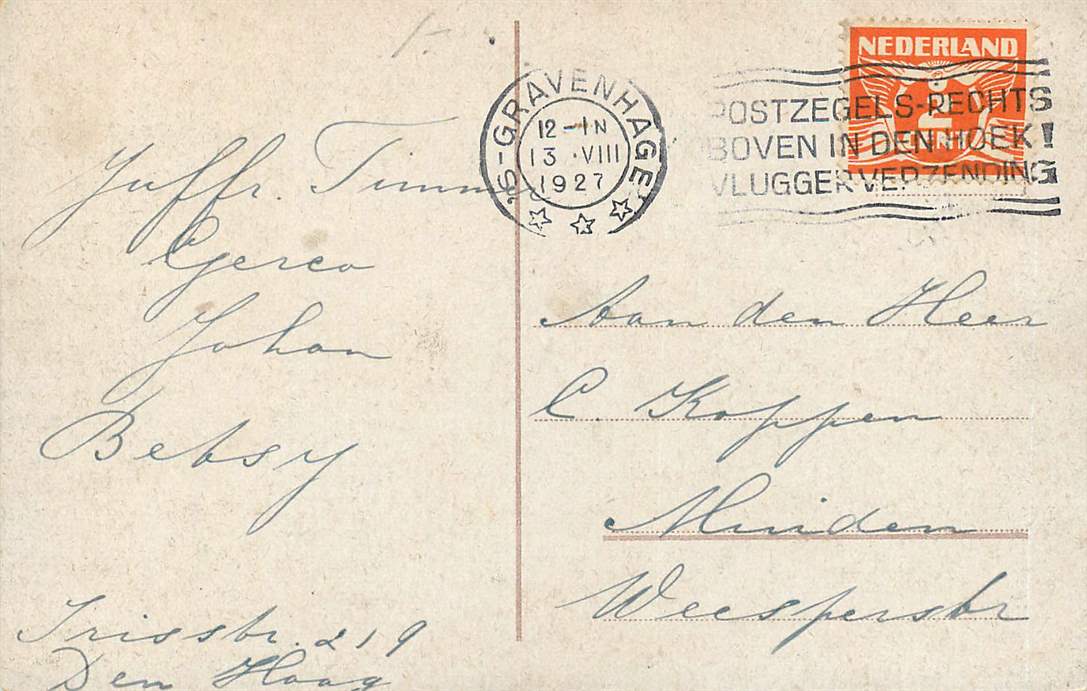 Juffr Timmer
Gerco
Johan
Betsy
Irisstr. 219
Den Haag
'S-GRAVENHAGE
12-1N
13 .VIII
1927
POSTZEGELS-RECHTS
BOVEN IN DEN HOEK!
VLUGGER VERZENDING
NEDERLAND
2
CENT
Aan den Heer
C. Koppen
Muiden
Weesperstr